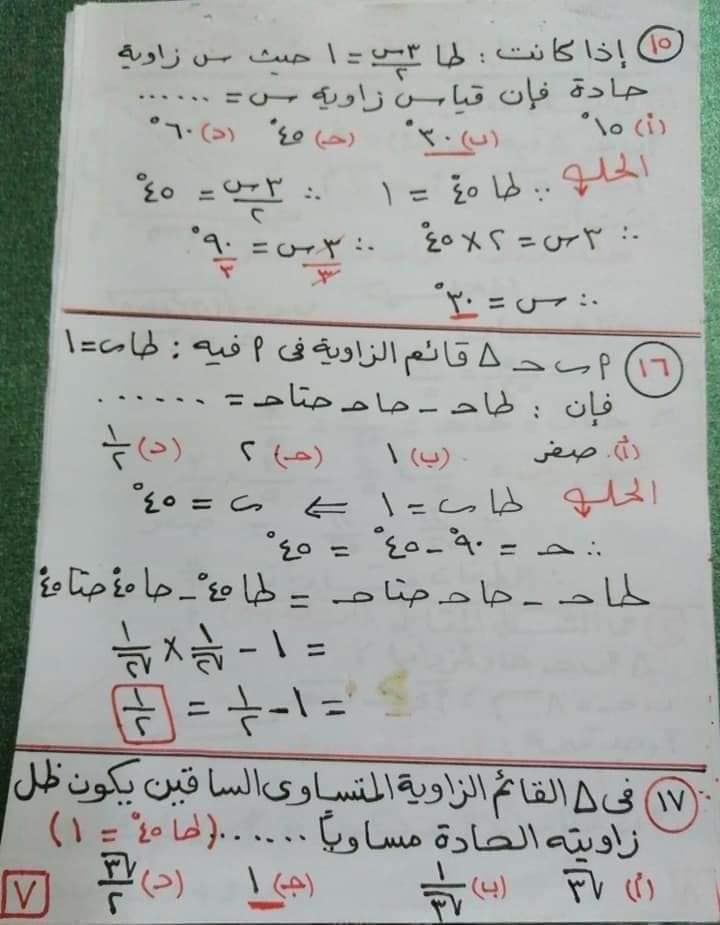 ١٥ إذا كانت : طا ٣س/٢ = ١ حيث س زاوية
حادة فإن قياس زاوية س = ......
(أ) ١٥° (ب) ٣٠° (حـ) ٤٥° (د) ٦٠°
الحل ∵ طا ٤٥° = ١ ∴ ٣س/٢ = ٤٥°
∴ ٣س = ٢ × ٤٥° ∴ ٣س/٣ = ٩٠°/٣
∴ س = ٣٠°
١٦ ٩ ب حـ Δ قائم الزاوية فى ٩ فيه : طا ب = ١
فإن : طا حـ - حا حـ حتا حـ = ......
(أ) صفر (ب) ١ (حـ) ٢ (د) ١/٢
الحل طا ب = ١ ⇐ ب = ٤٥°
∴ حـ = ٩٠° - ٤٥° = ٤٥°
طا حـ - حا حـ حتا حـ = طا ٤٥° - حا ٤٥° حتا ٤٥°
= ١ - ١/√٢ × ١/√٢
= ١ - ١/٢ = ١/٢
١٧ فى Δ القائم الزاوية المتساوى الساقين يكون ظل
زاويته الحادة مساوياً ...... (طا ٤٥° = ١)
(أ) √٣ (ب) ١/√٣ (جـ) ١ (د) √٣/٢
٧